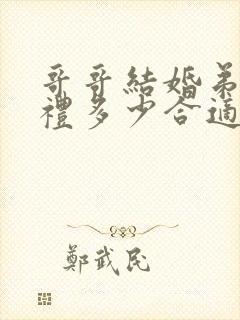 哥哥結婚弟
禮多少合適
鄭武民